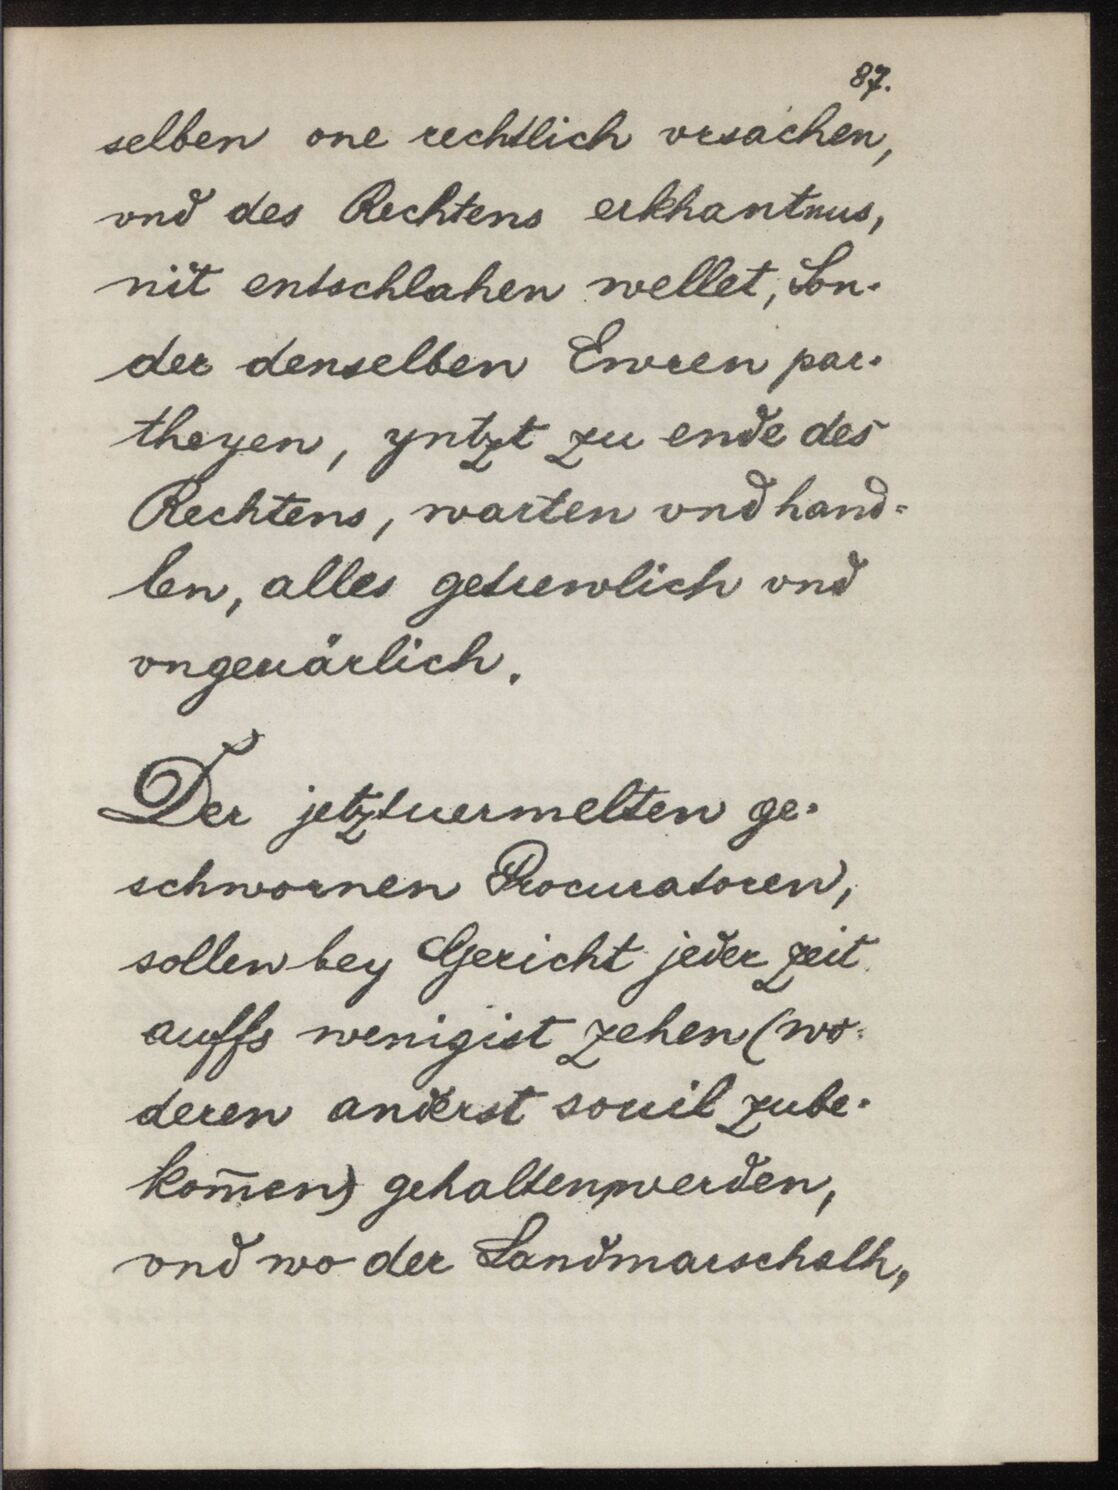 87.
selben one rechtlich vrsachen,
vnd des Rechtens erkhantnus,
nit entschlahen wellet, Son-
der denselben Ewren par-
theyen, yntzt zu ende des
Rechtens, warten vnd hand-
len, alles getrewlich vnd
vngeuärlich.
Der jetztuermelten ge-
schwornen Procuratoren,
sollen bey Gericht jeder zeit
auffs wenigist zehen (wo-
deren anderst souil zube-
kom̄en) gehalten werden,
vnd wo der Landmarschalh,